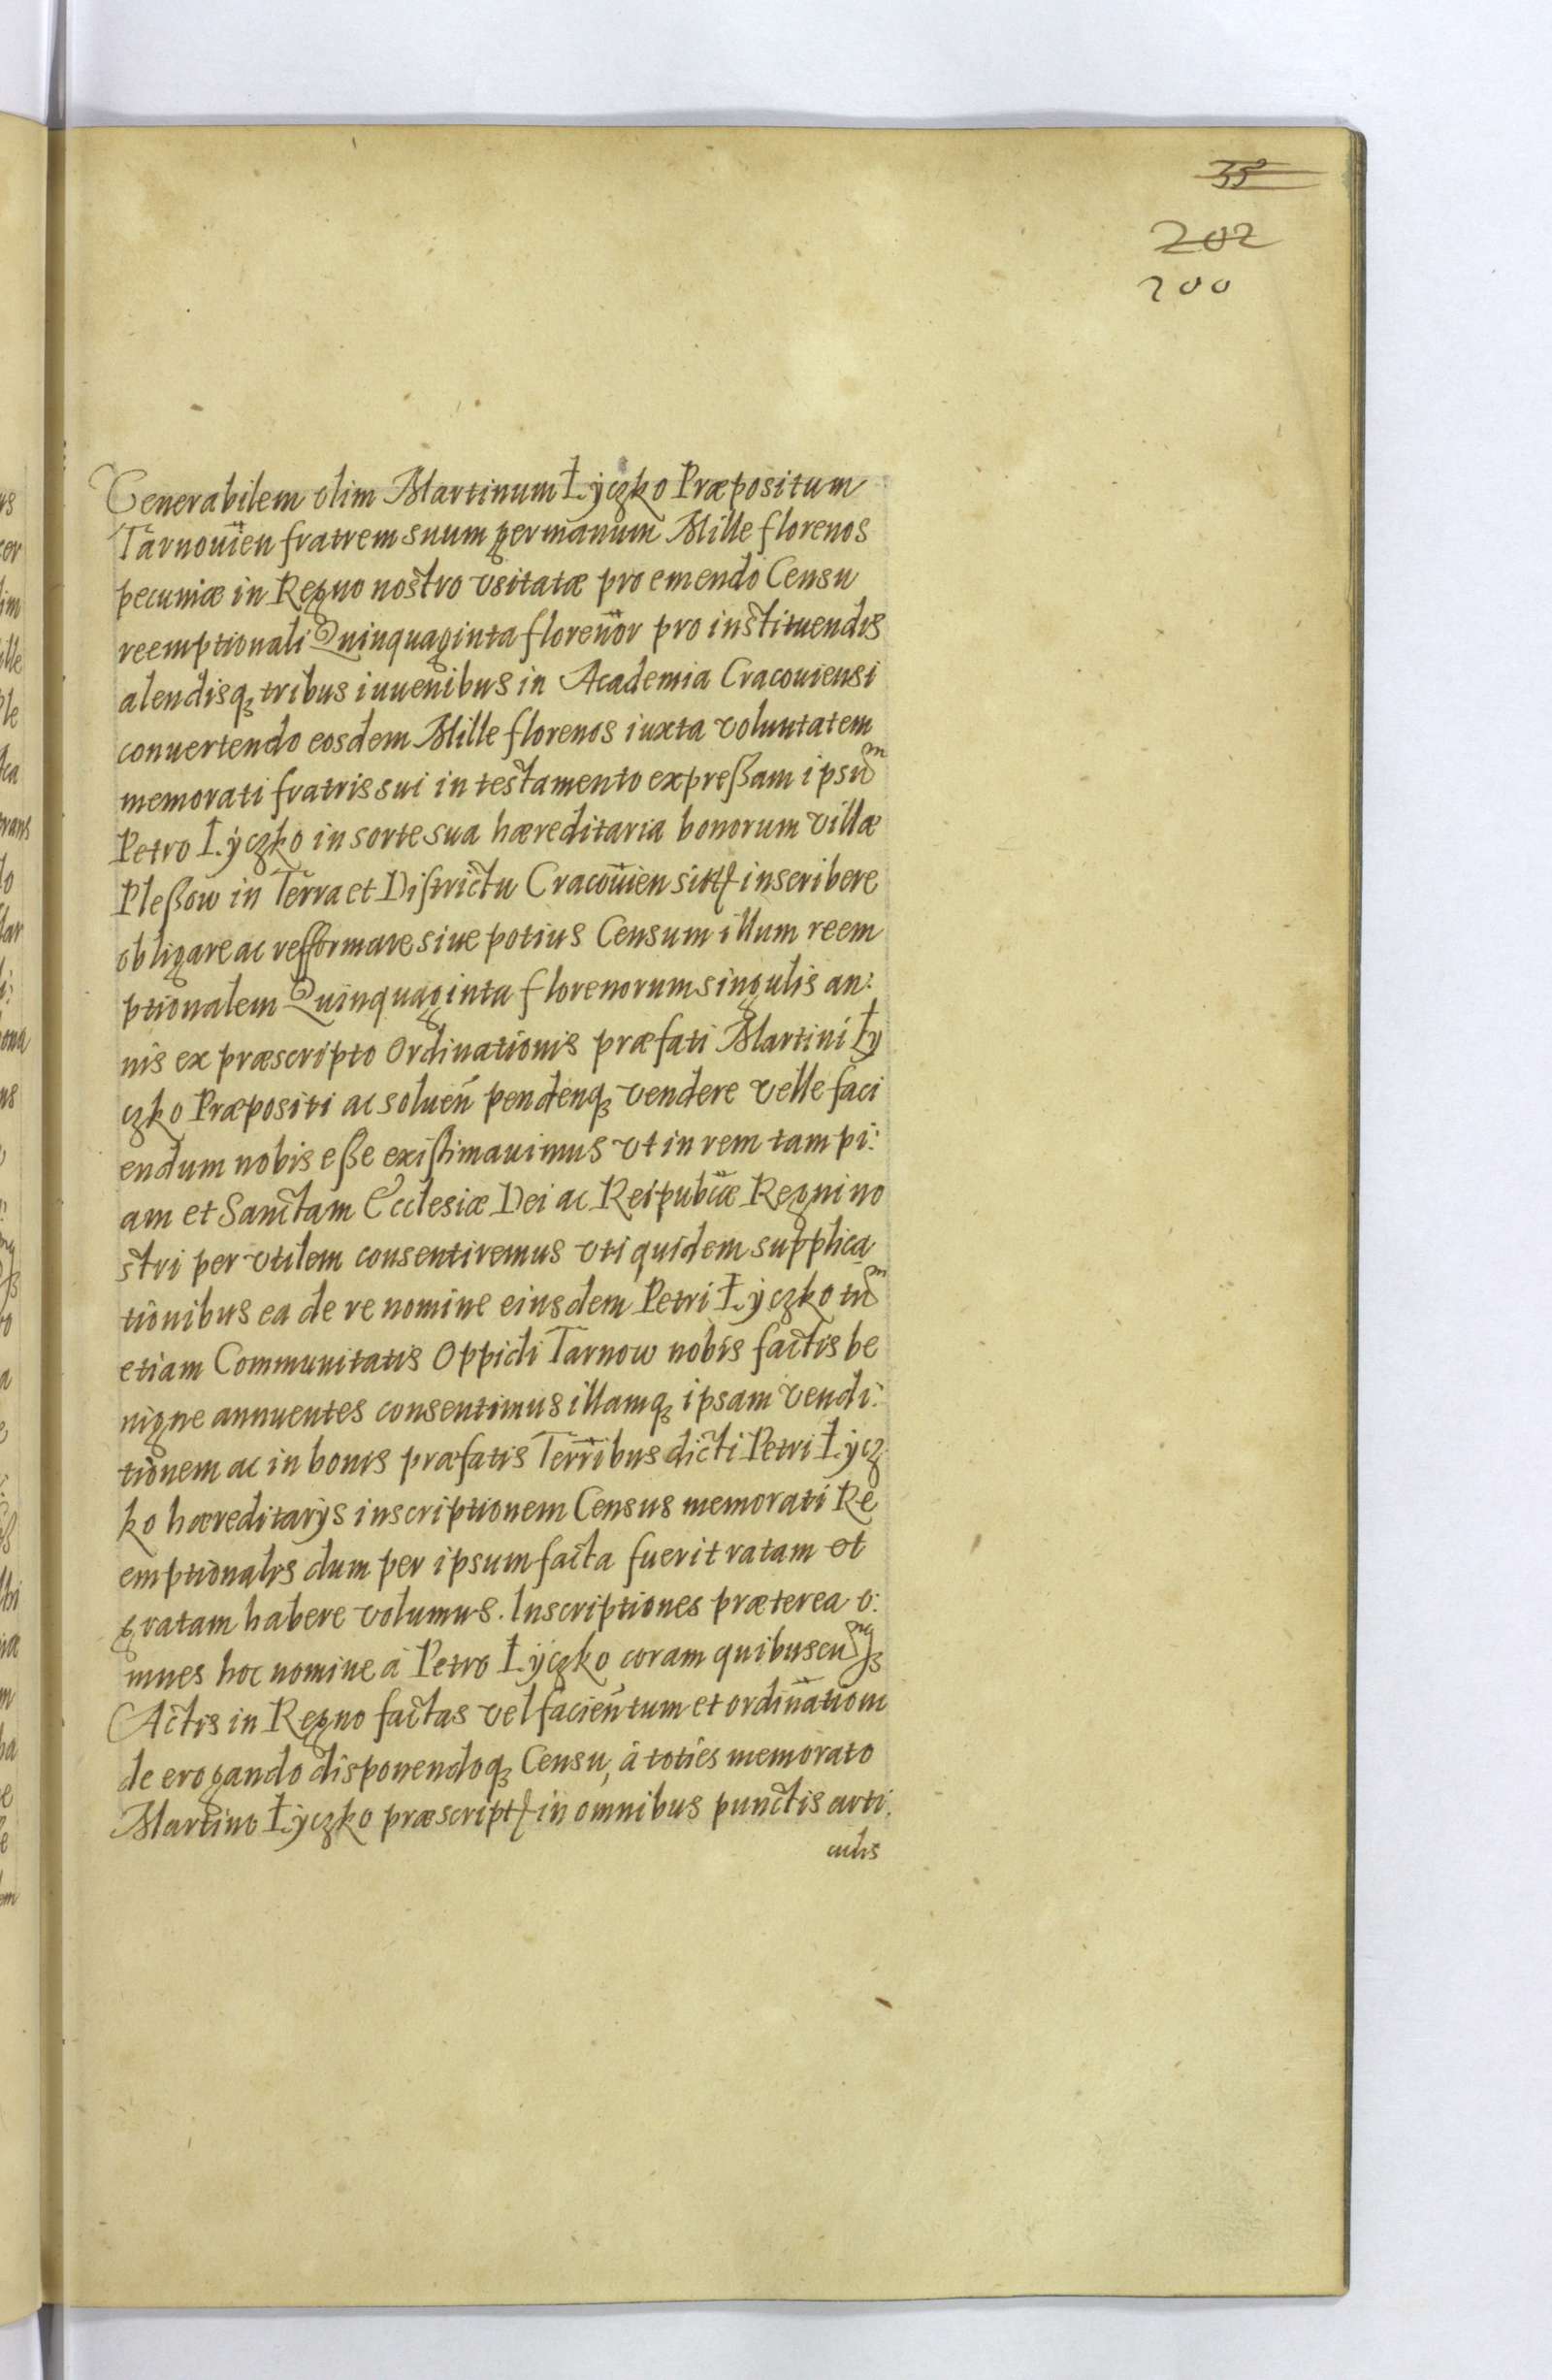 35
202
200
Venerabilem olim Martinum Łyczko Præpositum
Tarnouien̄ fratrem suum germanum Mille florenos
pecuniæ in Regno nostro vsitatæ pro emendo Censu
reemptionali Quinquaginta floren̄or pro instituendis
alendisqꝫ tribus iuuenibus in Academia Cracouiensi
conuertendo eosdem Mille florenos iuxta voluntatem
memorati fratris sui in testamento expreßam ipsum
Petro Łyczko in sorte sua hæreditaria bonorum villæ
Pleßow in Terra et Districtu Cracouien̄ inscribere
obligare ac refformare siue potius Censum illum reem
ptionalem Quinquaginta florenorum singulis an:
nis ex præscripto Ordinationis præfati Martini Ły
czko Præpositi ac soluen̄ pendenqꝫ vendere velle faci
endum nobis eße existimauimus vt in rem tam pi:
am et Sanctam Ecclesiæ Dei ac Reipubcæ Regni no
stri per vtilem consentiremus vti quidem supplica
tionibus ea de re nomine eiusdem Petri Łyczko tum
etiam Communitatis Oppidi Tarnow nobis factis be
nigne annuentes consentimus illamqꝫ ipsam vendi:
tionem ac in bonis præfatis Terribus dicti Petri Łycz
ko hæreditarijs inscriptionem Census memorati Re
emptionalis dum per ipsum facta fuerit ratam et
gratam habere volumus. Inscriptiones præterea o:
mnes hoc nomine á Petro Łyczko coram quibuscunqꝫ
Actis in Regno factas vel facien̄ tum et ordin̄ationem
de erogando disponendoqꝫ Censu, á toties memorato
Martino Łyczko præscript in omnibus punctis arti:
culis